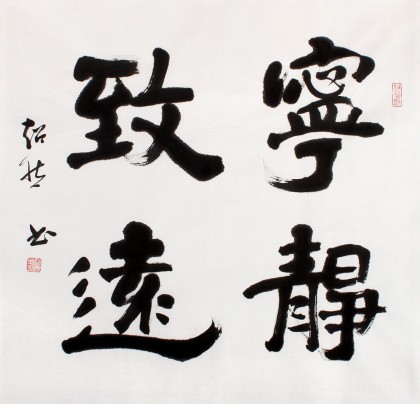 寧靜
致遠
书